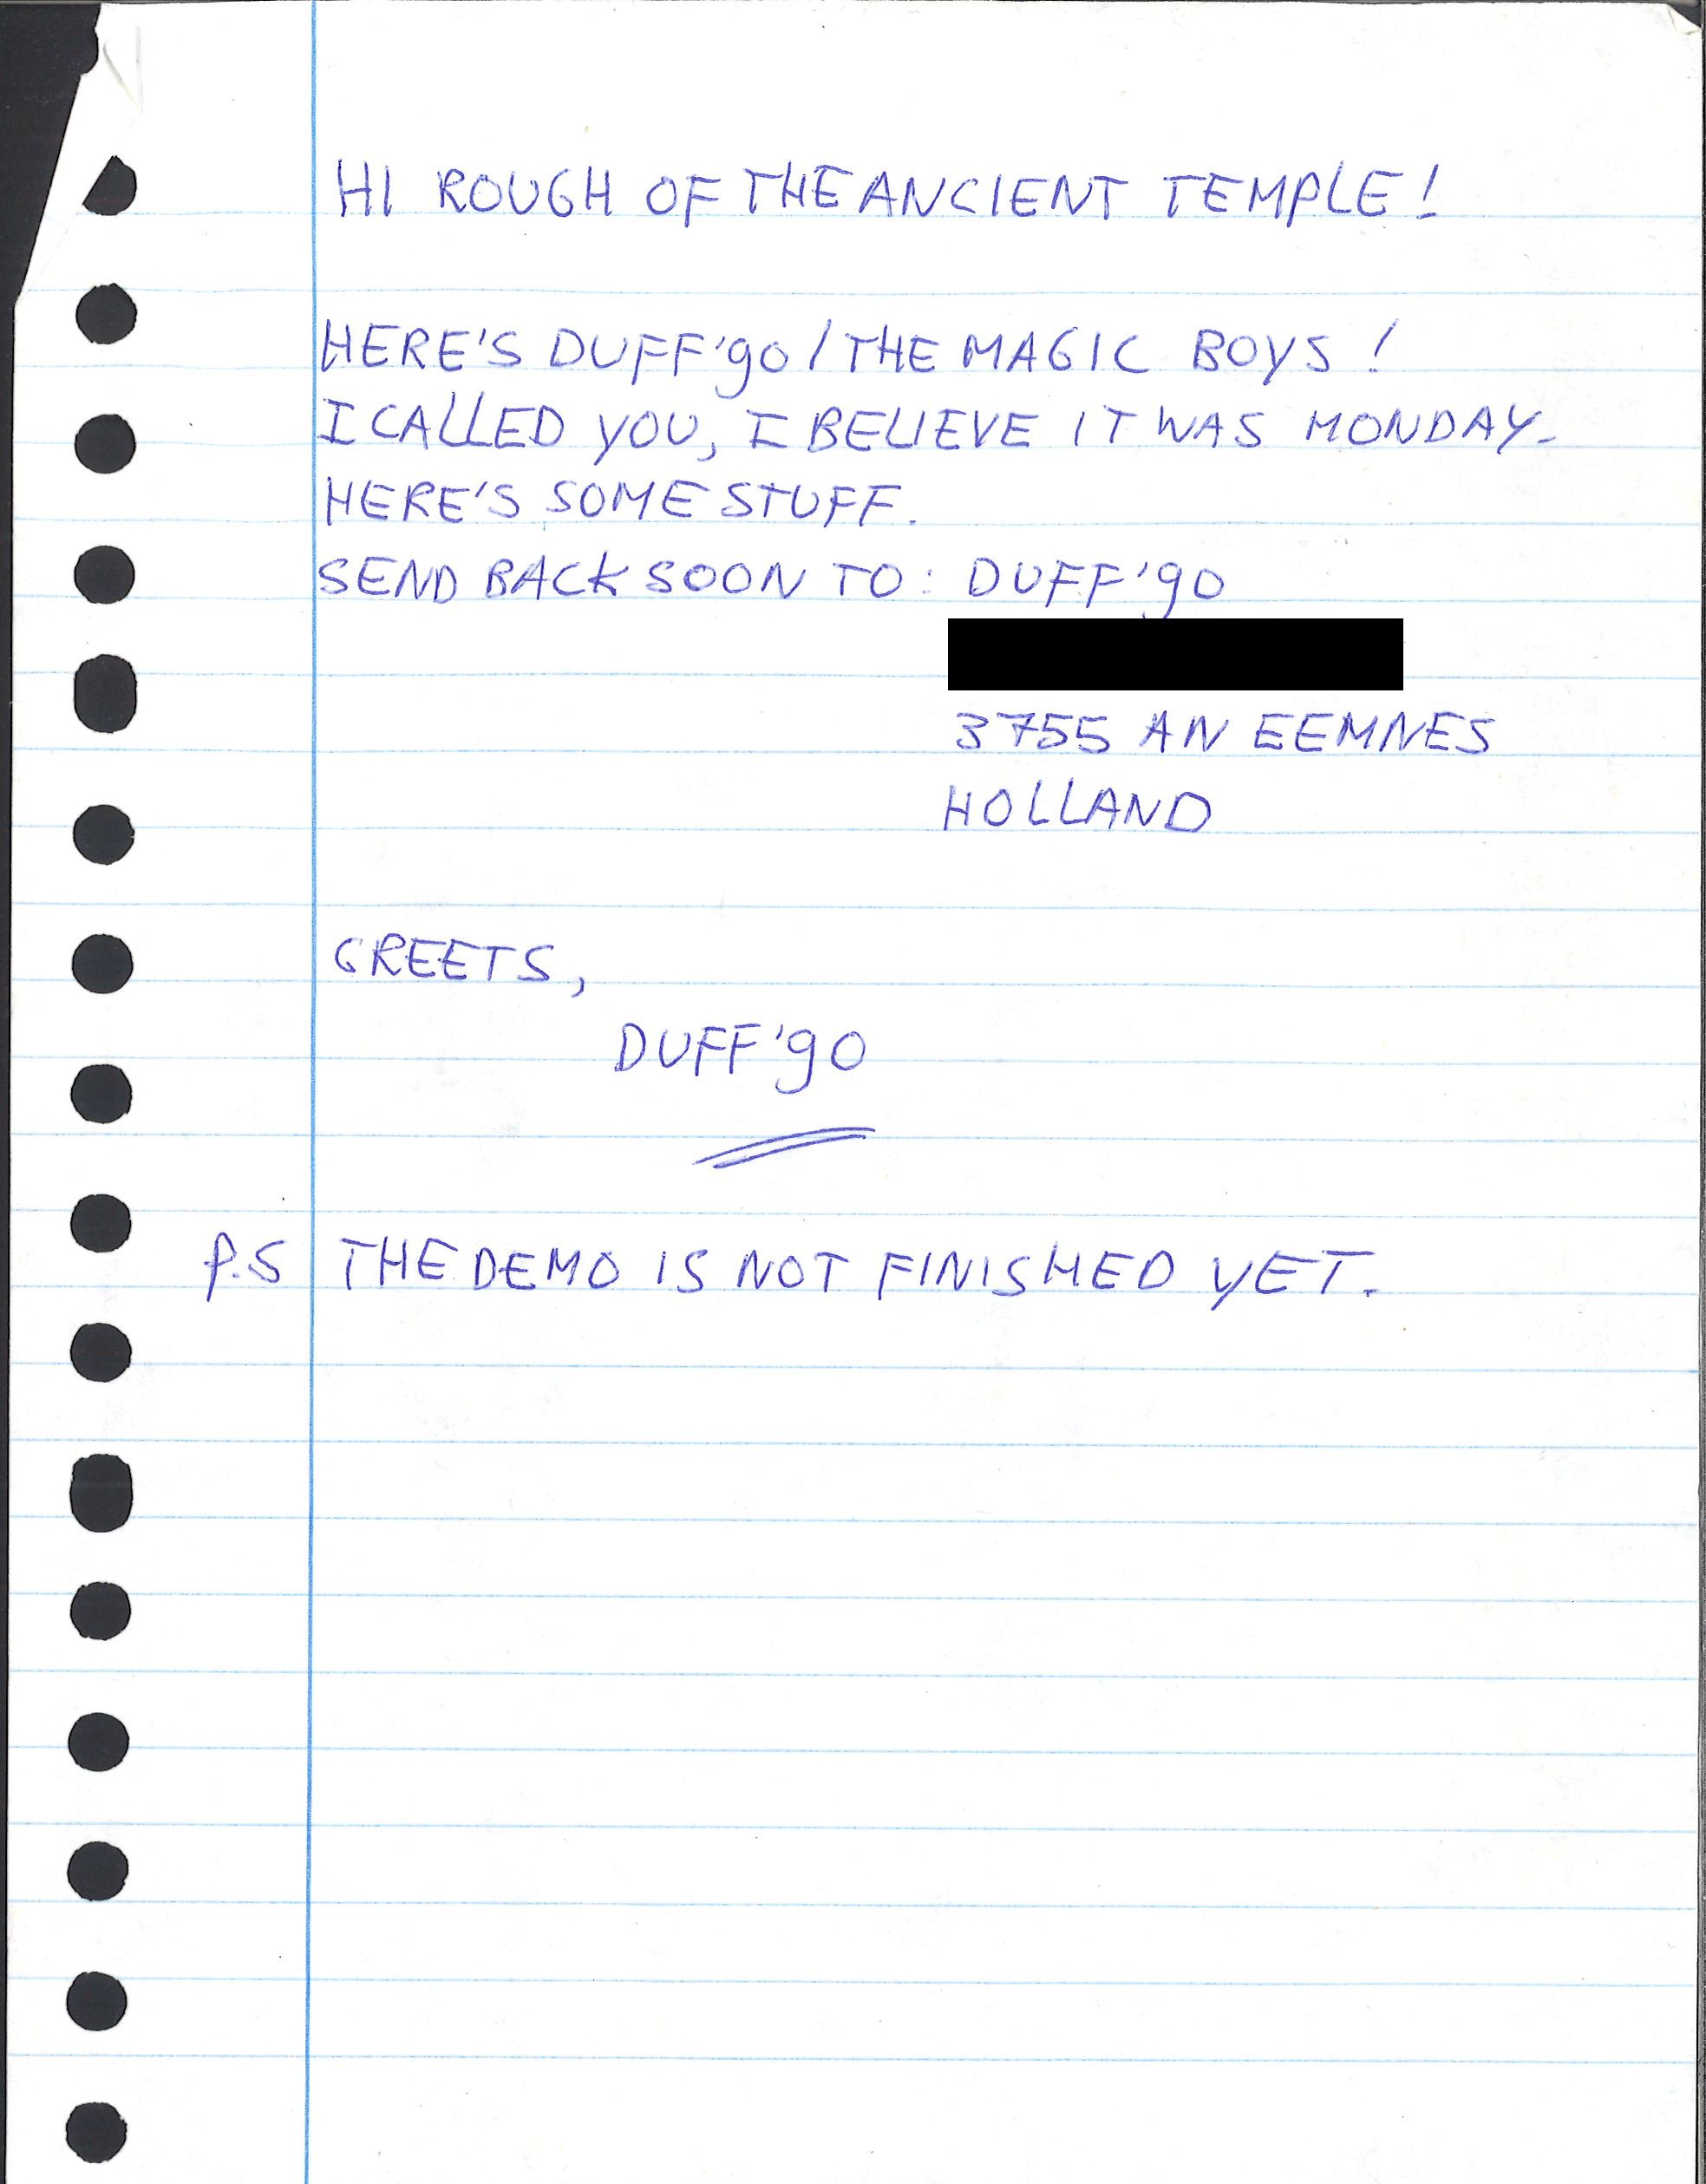 HI ROUGH OF THE ANCIENT TEMPLE!
HERE'S DUFF'go / THE MAGIC BOYS!
I CALLED YOU, I BELIEVE IT WAS MONDAY.
HERE'S SOME STUFF.
SEND BACK SOON TO: DUFF'go
3755 AN EEMNES
HOLLAND
GREETS,
DUFF'go
P.S THE DEMO IS NOT FINISHED YET.